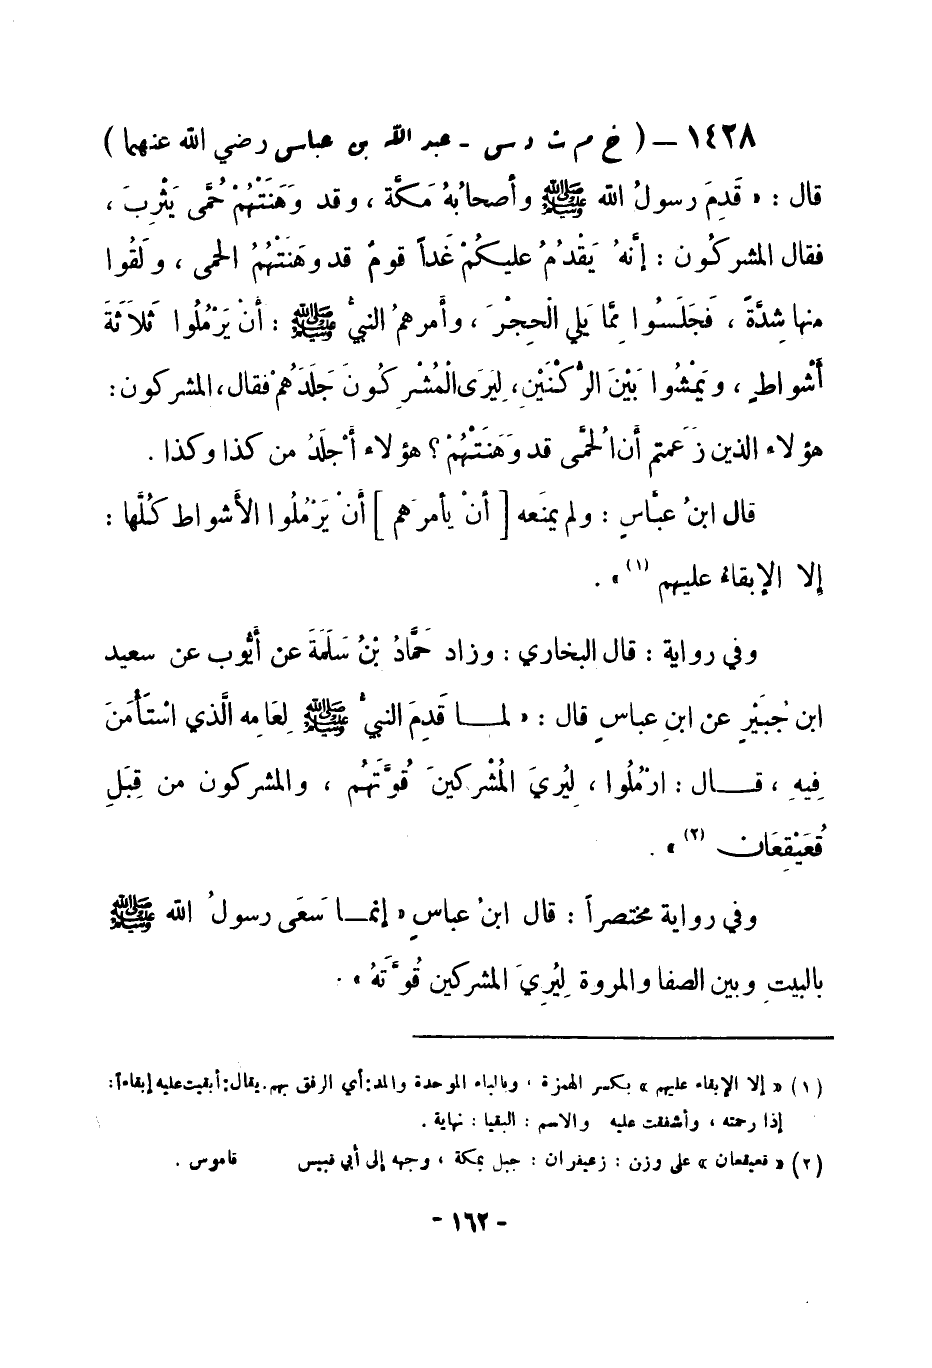 ١٤٢٨ – ( خ م ت د س - عبد الله بن عباس رضي الله عنهما )
قال : « قَدِمَ رسولُ الله ﷺ وأصحابُهُ مَكَّة ، وقد وَهَنَتْهُمْ حُمَّى يَثْرِبَ ،
فقال المشركُون : إنَّهُ يَقْدُمُ عليكُمْ غَداً قومٌ قد وهَنَتْهُمُ الحمى ، ولَقُوا
منها شِدَّةً ، فَجَلَسُوا مِمَّا يَلي الْحِجْرَ ، وأمرهمُ النبيُّ ﷺ : أنْ يَرْمُلُوا ثَلاَثَةَ
أَشْواطٍ ، ويَمْشُوا بَيْنَ الرُّكْنَيْنِ ، لِيَرَى الْمُشْرِكُونَ جَلَدَهُمْ فقال ، المشركون :
هؤلاء الذين زَعمتم أن الْحمَّى قد وَهَنَتْهُمْ ؟ هؤلاء أجْلَدُ من كذا وكذا .
قال ابنُ عبَّاسٍ : ولم يمنَعه [ أنْ يأمرَهم ] أنْ يَرْمُلُوا الأشواط كُلَّها :
إلا الإبقاءُ عليهم (١) » .
وفي رواية : قال البخاري : وزاد حَمَّادُ بْنُ سَلَمَةَ عن أيُّوب عن سعيد
ابن جُبَيْرٍ عن ابنِ عباسٍ قال : « لمـــا قَدِمَ النبيُّ ﷺ لِعَامِه الَّذي اسْتَأْمَنَ
فِيهِ ، قـــال : ارْمُلُوا ، لِيُريَ المُشْركينَ قُوَّتَهُم ، والمشركون من قِبَلِ
قُعَيْقِعَان (٢) » .
وفي رواية مختصراً : قال ابنُ عباسٍ « إنمـــا سَعَى رسولُ الله ﷺ
بالبيتِ وبين الصفا والمروة لِيُرِيَ المشركين قُوَّتَهُ » .
(١) « إلا الإبقاء عليهم » بكسر الهمزة ، وبالباء الموحدة والمد: أي الرفق بهم. يقال: أبقيت عليه إبقاءاً:
إذا رحمته ، وأشفقت عليه والاسم : البقيا : نهاية .
(٢) « قعيقعان » على وزن : زعيفران : جبل بمكة ، وجهه إلى أبي قبيس قاموس .
- ١٦٢ -